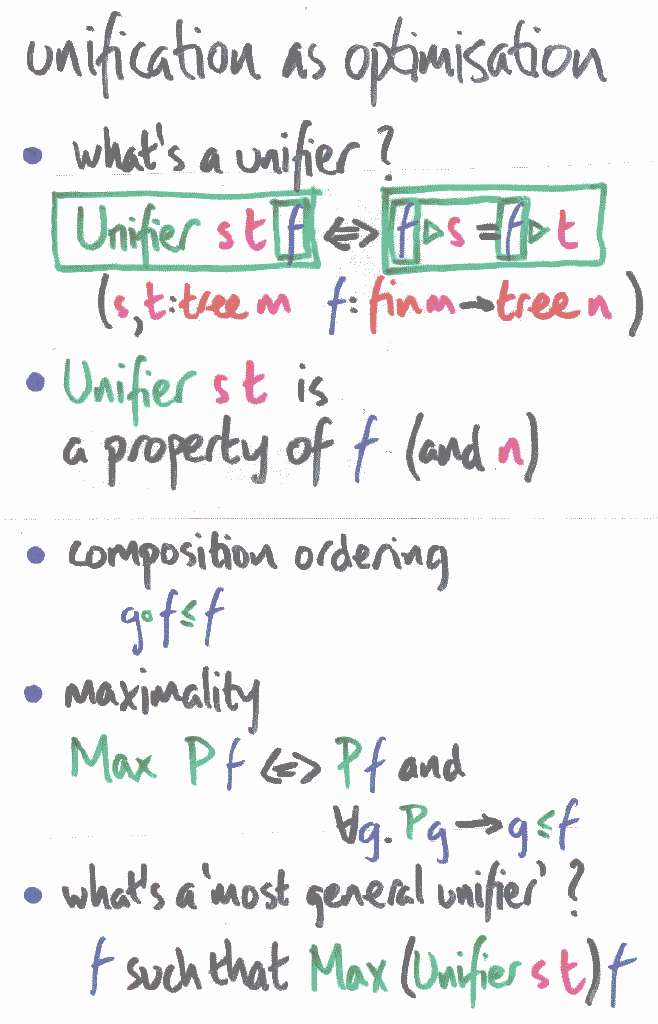 unification as optimisation
• what's a unifier?
Unifier s t f ⇔ f ▷ s = f ▷ t
(s, t : tree m f : fin m → tree n)
• Unifier s t is
a property of f (and n)
• composition ordering
g ∘ f ≤ f
• maximality
Max P f ⇔ P f and
∀g. P g → g ≤ f
• what's a 'most general unifier'?
f such that Max (Unifier s t) f